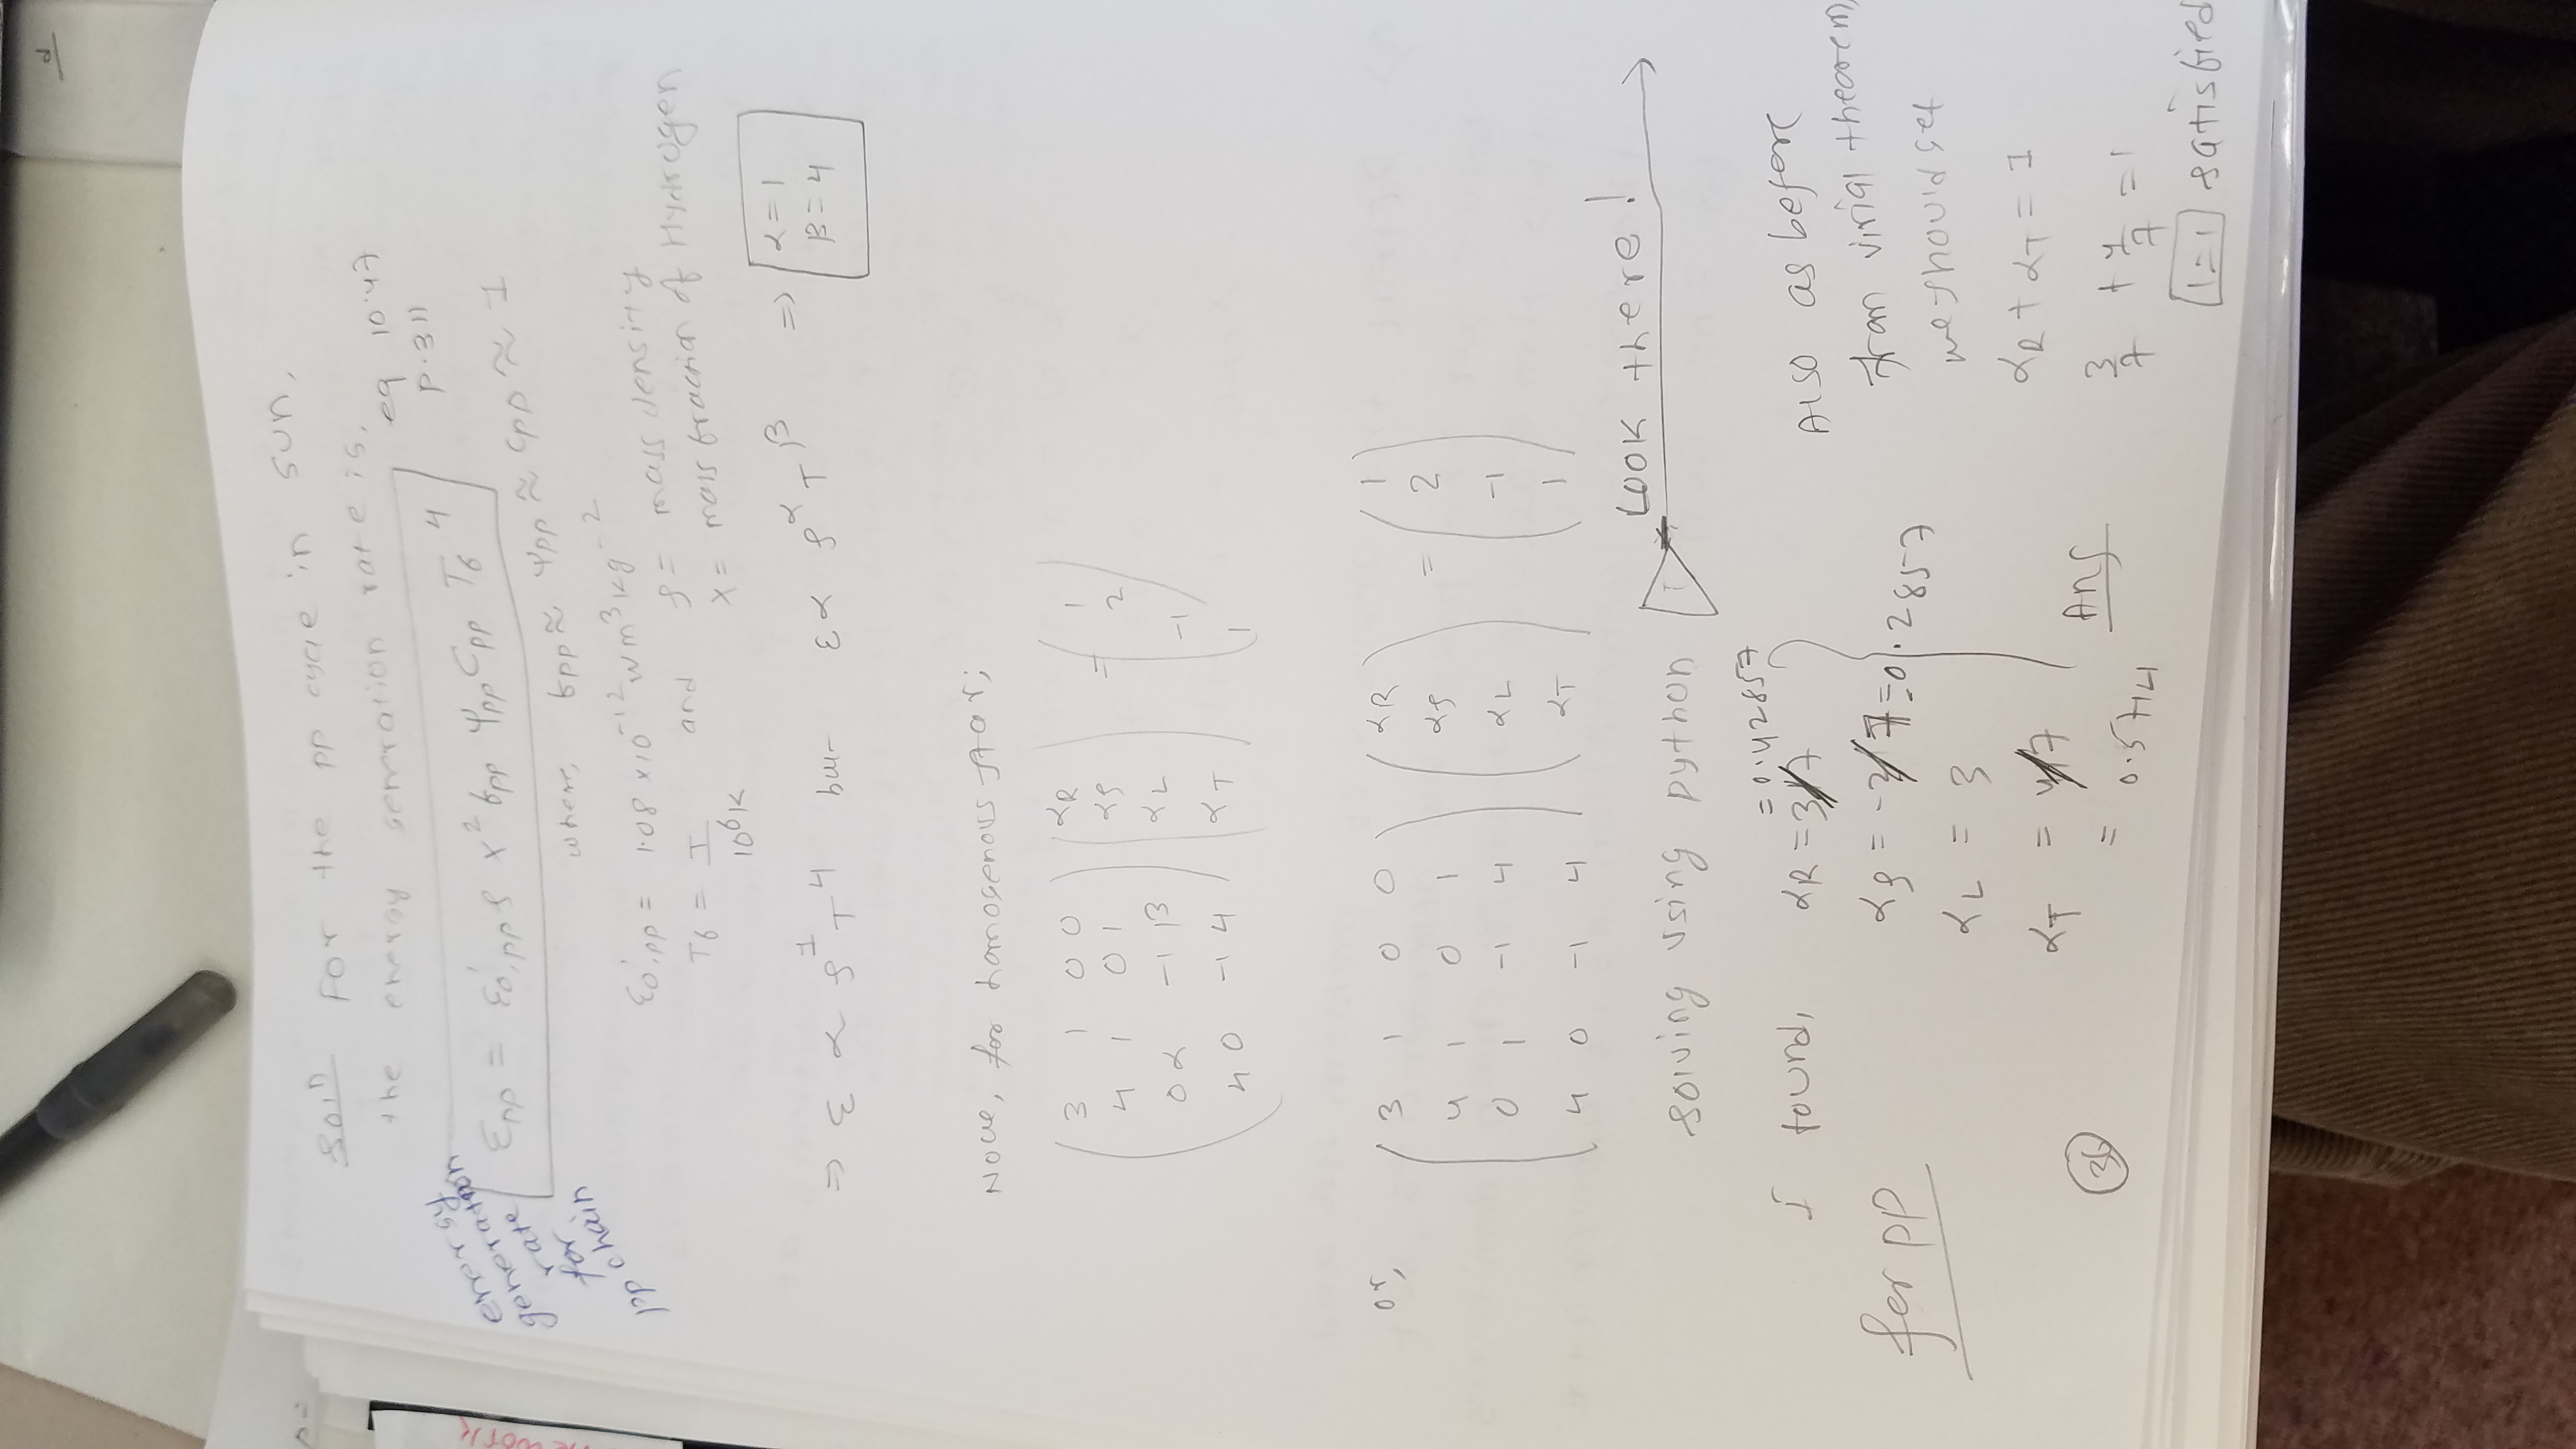 soln For the pp cycle in sun,
the energy generation rate is,
eq 10.47
p.311
energy
generation
rate
for
pp chain
εpp = ε0',pp ρ x² fpp ψpp Cpp T6⁴
where, fpp ≈ ψpp ≈ Cpp ≈ 1
ε0',pp = 1.08 × 10⁻¹² W m³ kg⁻²
T6 = T/10⁶K and ρ = mass density
x = mass fraction of Hydrogen
⇒ ε ∝ ρ¹ T⁴ but ε ∝ ρ^α T^β ⇒ α = 1
β = 4
Now, for homogenous star;
3 1 0 0 αR 1
4 1 0 1 αρ = 2
0 α -1 β αL -1
4 0 -1 4 αT 1
or,
3 1 0 0 αR 1
4 1 0 1 αρ = 2
0 1 -1 4 αL -1
4 0 -1 4 αT 1
Look there!
solving using python
= 0.42857
I found, αR = 3/7
for pp
αρ = -2/7 = 0.2857
αL = 3
αT = 4/7
= 0.5714
Ans
36
Also as before
from virial theorem,
we should get
αR + αT = 1
3/7 + 4/7 = 1
1=1 satisfied